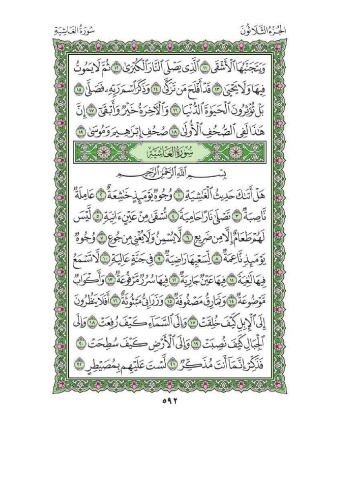 الجُزءُ الثَّلاثُونَ
سُورَةُ الغَاشِيَةِ
وَيَتَجَنَّبُهَا ٱلْأَشْقَى ١١ ٱلَّذِى يَصْلَى ٱلنَّارَ ٱلْكُبْرَىٰ ١٢ ثُمَّ لَا يَمُوتُ
فِيهَا وَلَا يَحْيَىٰ ١٣ قَدْ أَفْلَحَ مَن تَزَكَّىٰ ١٤ وَذَكَرَ ٱسْمَ رَبِّهِۦ فَصَلَّىٰ ١٥
بَلْ تُؤْثِرُونَ ٱلْحَيَوٰةَ ٱلدُّنْيَا ١٦ وَٱلْآخِرَةُ خَيْرٌ وَأَبْقَىٰٓ ١٧ إِنَّ
هَٰذَا لَفِى ٱلصُّحُفِ ٱلْأُولَىٰ ١٨ صُحُفِ إِبْرَٰهِيمَ وَمُوسَىٰ ١٩
سُورَةُ الغَاشِيَةِ
بِسْمِ ٱللَّهِ ٱلرَّحْمَٰنِ ٱلرَّحِيمِ
هَلْ أَتَىٰكَ حَدِيثُ ٱلْغَٰشِيَةِ ١ وُجُوهٌ يَوْمَئِذٍ خَٰشِعَةٌ ٢ عَامِلَةٌ
نَّاصِبَةٌ ٣ تَصْلَىٰ نَارًا حَامِيَةً ٤ تُسْقَىٰ مِنْ عَيْنٍ ءَانِيَةٍ ٥ لَّيْسَ
لَهُمْ طَعَامٌ إِلَّا مِن ضَرِيعٍ ٦ لَّا يُسْمِنُ وَلَا يُغْنِى مِن جُوعٍ ٧ وُجُوهٌ
يَوْمَئِذٍ نَّاعِمَةٌ ٨ لِّسَعْيِهَا رَاضِيَةٌ ٩ فِى جَنَّةٍ عَالِيَةٍ ١٠ لَّا تَسْمَعُ
فِيهَا لَٰغِيَةً ١١ فِيهَا عَيْنٌ جَارِيَةٌ ١٢ فِيهَا سُرُرٌ مَّرْفُوعَةٌ ١٣ وَأَكْوَابٌ
مَّوْضُوعَةٌ ١٤ وَنَمَارِقُ مَصْفُوفَةٌ ١٥ وَزَرَابِىُّ مَبْثُوثَةٌ ١٦ أَفَلَا يَنظُرُونَ
إِلَى ٱلْإِبِلِ كَيْفَ خُلِقَتْ ١٧ وَإِلَى ٱلسَّمَآءِ كَيْفَ رُفِعَتْ ١٨ وَإِلَى
ٱلْجِبَالِ كَيْفَ نُصِبَتْ ١٩ وَإِلَى ٱلْأَرْضِ كَيْفَ سُطِحَتْ ٢٠
فَذَكِّرْ إِنَّمَآ أَنتَ مُذَكِّرٌ ٢١ لَّسْتَ عَلَيْهِم بِمُصَيْطِرٍ ٢٢
٥٩٢